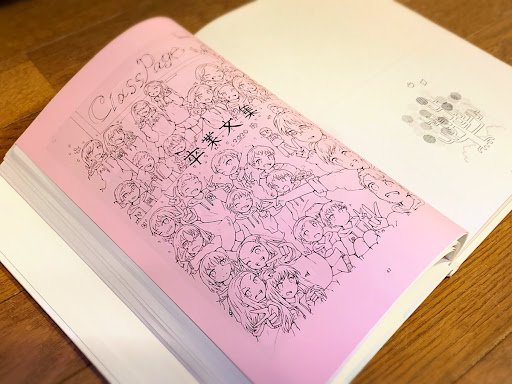 Class Page
卒業文集